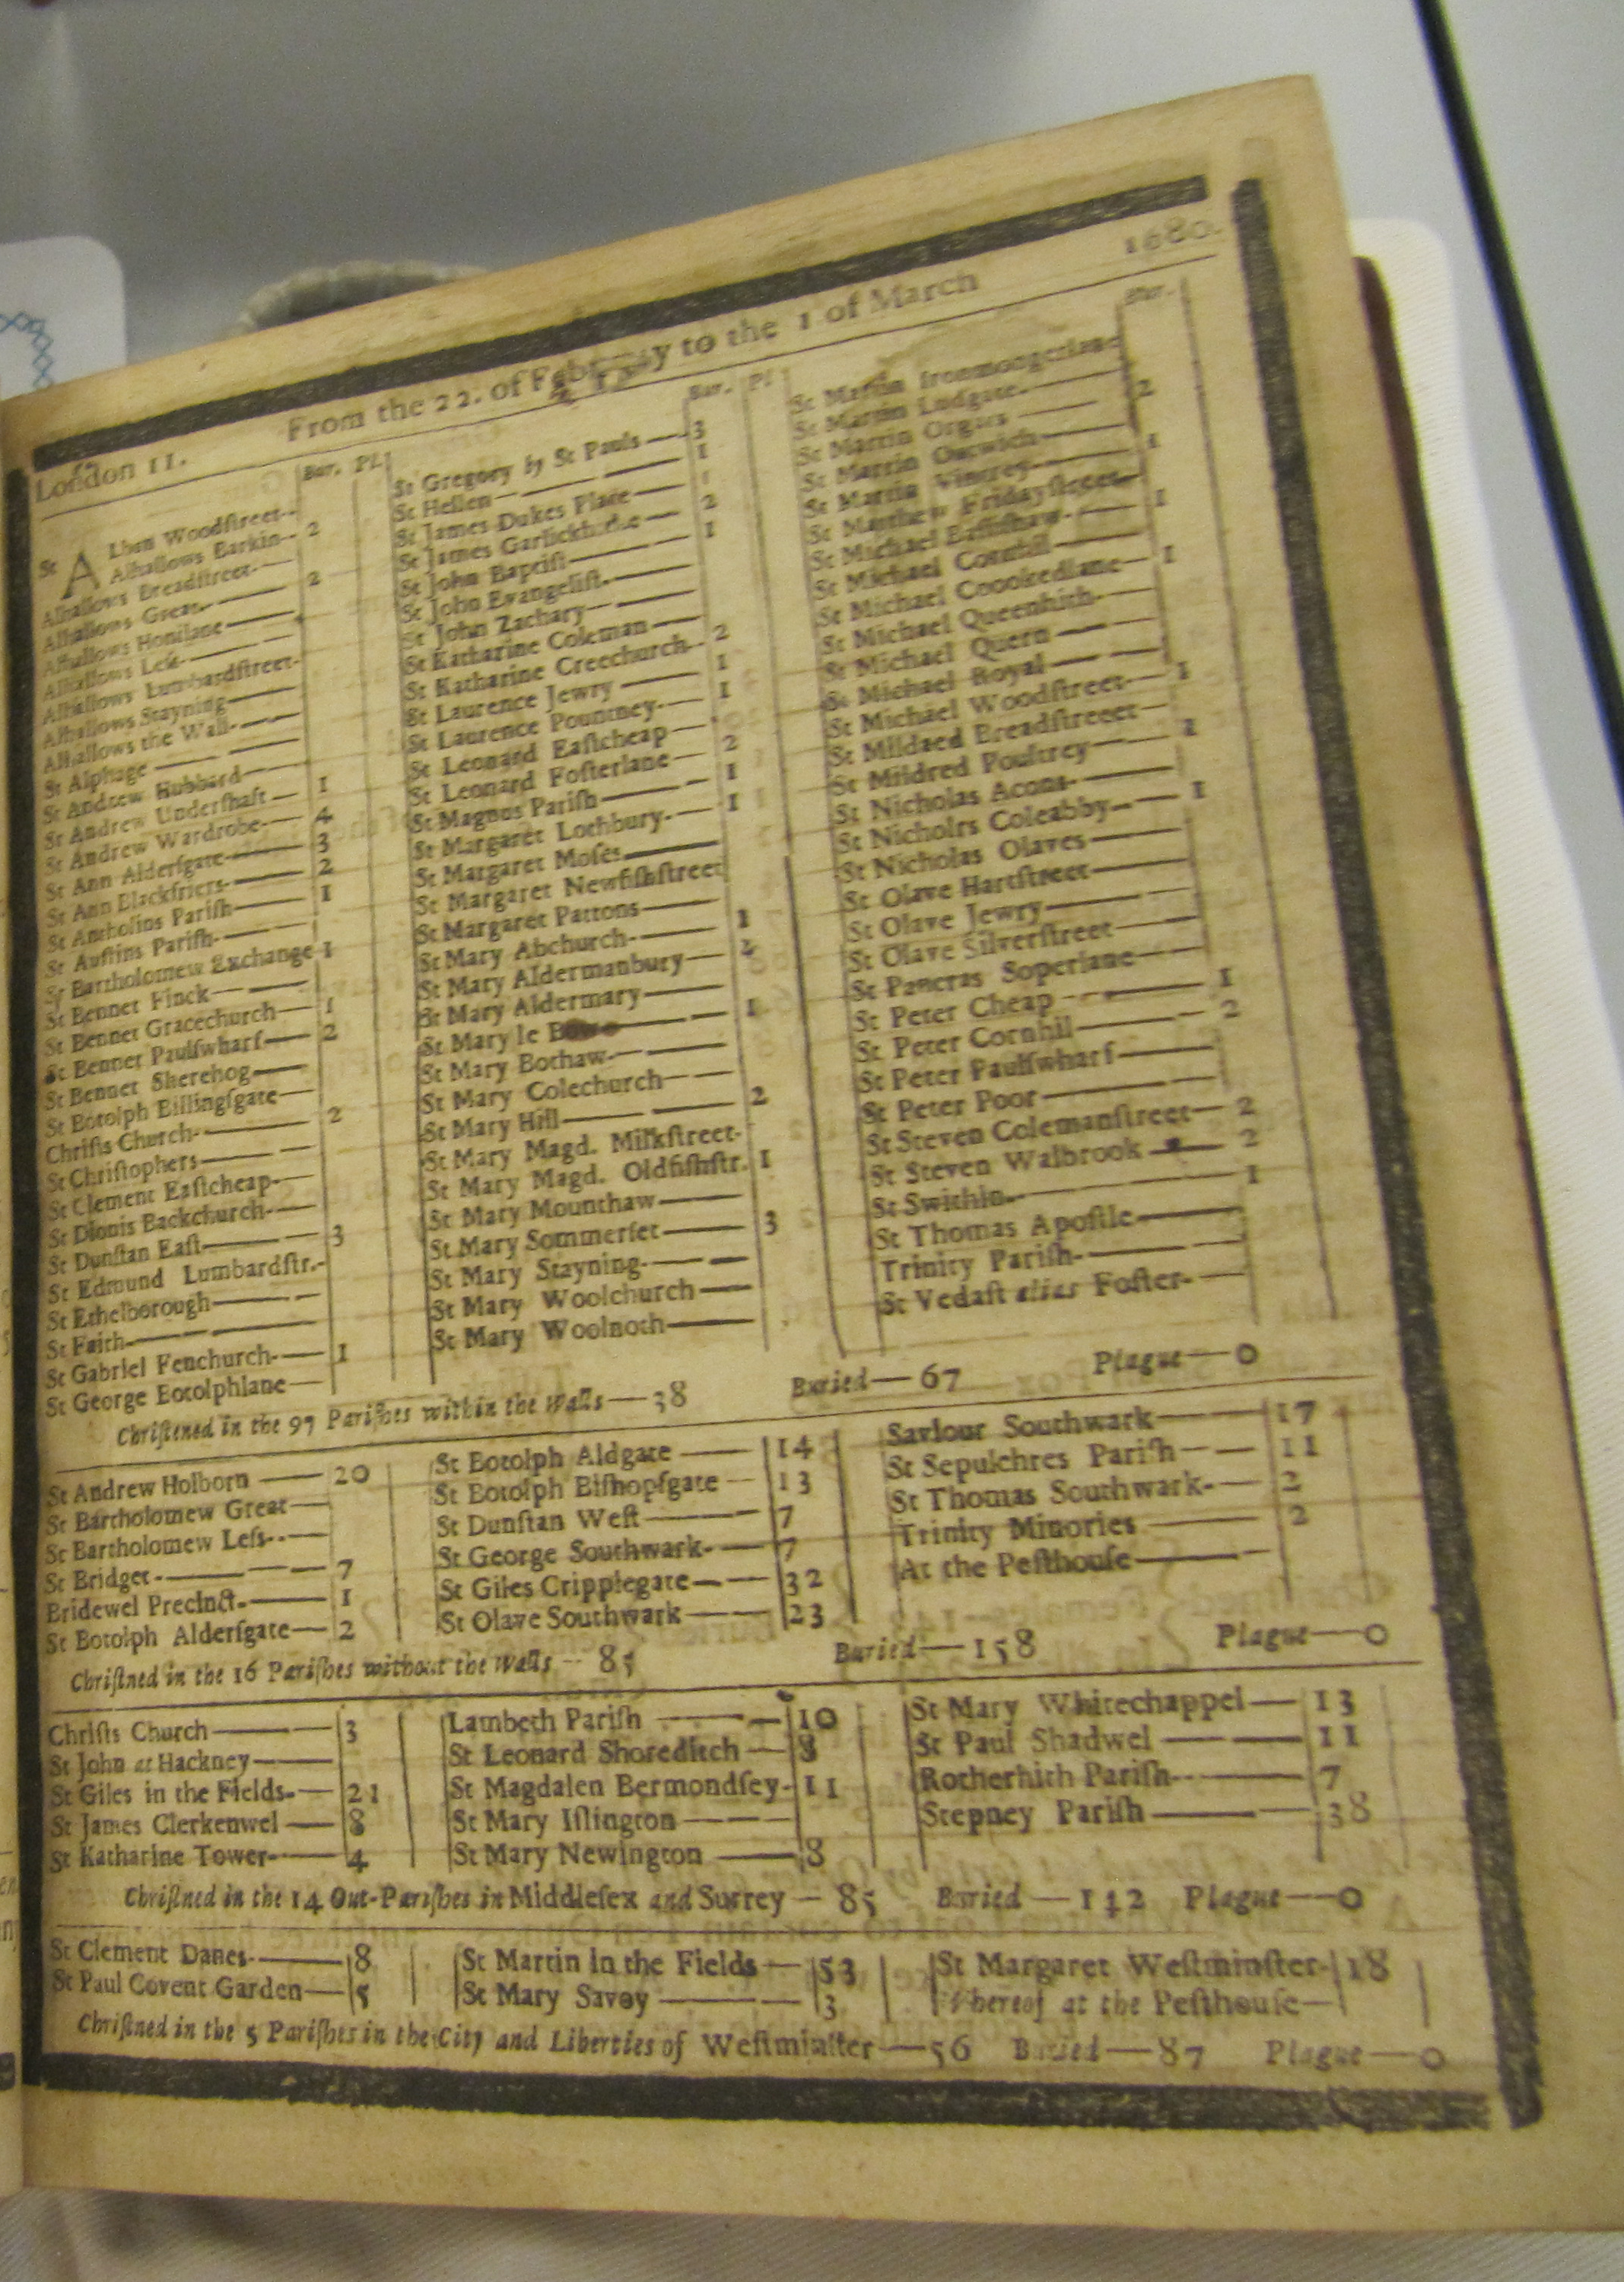 London 11. From the 22. of February to the 1 of March 1680.
Bur. Pl.
St Alban Woodstreet
Alhallows Barkin 2
Alhallows Breadstreet
Alhallows Great 2
Alhallows Honilane
Alhallows Less
Alhallows Lumbardstreet
Alhallows Stayning
Alhallows the Wall
St Alphage
St Andrew Hubbard
St Andrew Undershaft 1
St Andrew Wardrobe 4
St Ann Aldersgate 3
St Ann Blackfriers 2
St Antholins Parish 1
St Austins Parish
St Bartholomew Exchange 1
St Bennet Finck
St Bennet Gracechurch 1
St Bennet Paulswharf 2
St Bennet Sherehog
St Botolph Billingsgate
Christs Church 2
St Christophers
St Clement Eastcheap
St Dionis Backchurch
St Dunstan East 3
St Edmund Lumbardstr.
St Ethelborough
St Faith
St Gabriel Fenchurch 1
St George Botolphlane
Bur. Pl
St Gregory by St Pauls 3
St Hellen 1
St James Dukes Place 1
St James Garlickhithe 2
St John Baptist 1
St John Evangelist
St John Zachary
St Katharine Coleman
St Katharine Creechurch 2
St Laurence Jewry 1
St Laurence Pountney 1
St Leonard Eastcheap
St Leonard Fosterlane 2
St Magnus Parish 1
St Margaret Lothbury 1
St Margaret Moses
St Margaret Newfishstreet
St Margaret Pattons
St Mary Abchurch 1
St Mary Aldermanbury 2
St Mary Aldermary
St Mary le 1
St Mary Bothaw
St Mary Colechurch
St Mary Hill 2
St Mary Magd. Milkstreet
St Mary Magd. Oldfishstr. 1
St Mary Mounthaw
St Mary Sommerset 3
St Mary Stayning
St Mary Woolchurch
St Mary Woolnoth
Bur.
St Martin Ironmongerlane
St Martin Ludgate 2
St Martin Orgars
St Martin Outwich 1
St Martin Vintrey
St Matthew Fridaystreet 1
St Michael Bassishaw
St Michael Cornhil 1
St Michael Coookedlane
St Michael Queenhith
St Michael Quern
St Michael Royal
St Michael Woodstreet 1
St Mildaed Breadstreeet
St Mildred Poultrey 1
St Nicholas Acons
St Nicholrs Coleabby 1
St Nicholas Olaves
St Olave Hartstreet
St Olave Jewry
St Olave Silverstreet
St Pancras Soperlane
St Peter Cheap 1
St Peter Cornhil 2
St Peter Paulswharf
St Peter Poor
St Steven Colemanstreet 2
St Steven Walbrook 2
St Swithin 1
St Thomas Apostle
Trinity Parish
St Vedast alias Foster
Christened in the 97 Parishes within the Walls — 38 Buried — 67 Plague — 0
St Andrew Holborn — 20
St Bartholomew Great
St Bartholomew Less
St Bridget 7
Bridewel Precinct 1
St Botolph Aldersgate 2
St Botolph Aldgate 14
St Botolph Bishopsgate 13
St Dunstan West 7
St George Southwark 7
St Giles Cripplegate 32
St Olave Southwark 23
Saviour Southwark 17
St Sepulchres Parish 11
St Thomas Southwark 2
Trinity Minories 2
At the Pesthouse
Christned in the 16 Parishes without the Walls — 85 Buried — 158 Plague — 0
Christs Church 3
St John at Hackney
St Giles in the Fields 21
St James Clerkenwel 8
St Katharine Tower 4
Lambeth Parish 10
St Leonard Shoreditch 8
St Magdalen Bermondsey 11
St Mary Islington
St Mary Newington 8
St Mary Whitechappel 13
St Paul Shadwel 11
Rotherhith Parish 7
Stepney Parish 38
Christned in the 14 Out-Parishes in Middlesex and Surrey — 85 Buried — 142 Plague — 0
St Clement Danes 8
St Paul Covent Garden 5
St Martin in the Fields 53
St Mary Savoy 3
St Margaret Westminster 18
Whereof at the Pesthouse
Christned in the 5 Parishes in the City and Liberties of Westminster — 56 Buried — 87 Plague — 0